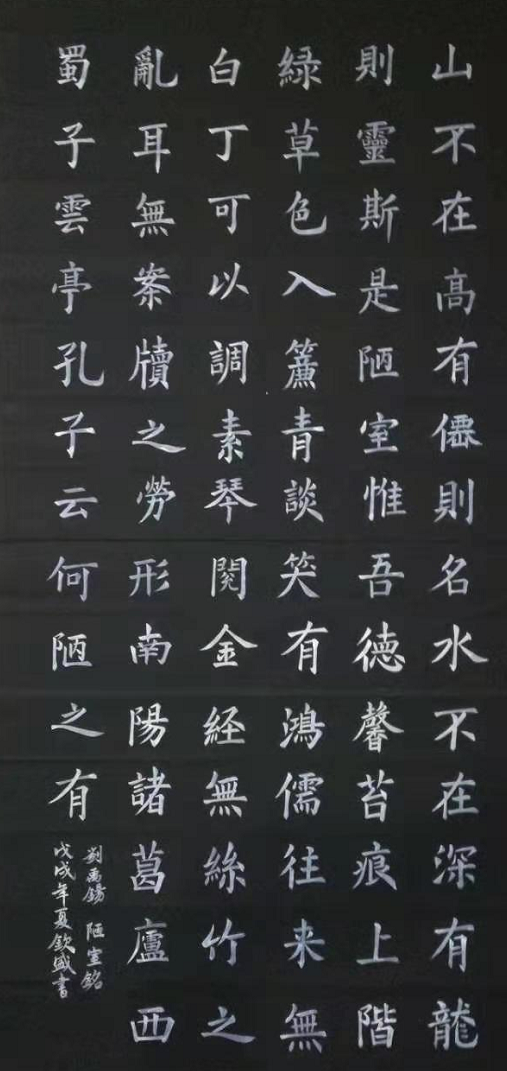 山不在高有僊則名水不在深有龍
則靈斯是陋室惟吾德馨苔痕上階
緑草色入簾青談笑有鴻儒往来無
白丁可以調素琴閲金経無絲竹之
亂耳無案牘之勞形南陽諸葛廬西
蜀子雲亭孔子云何陋之有
劉禹錫 陋室銘
戊戌年夏欽盛書